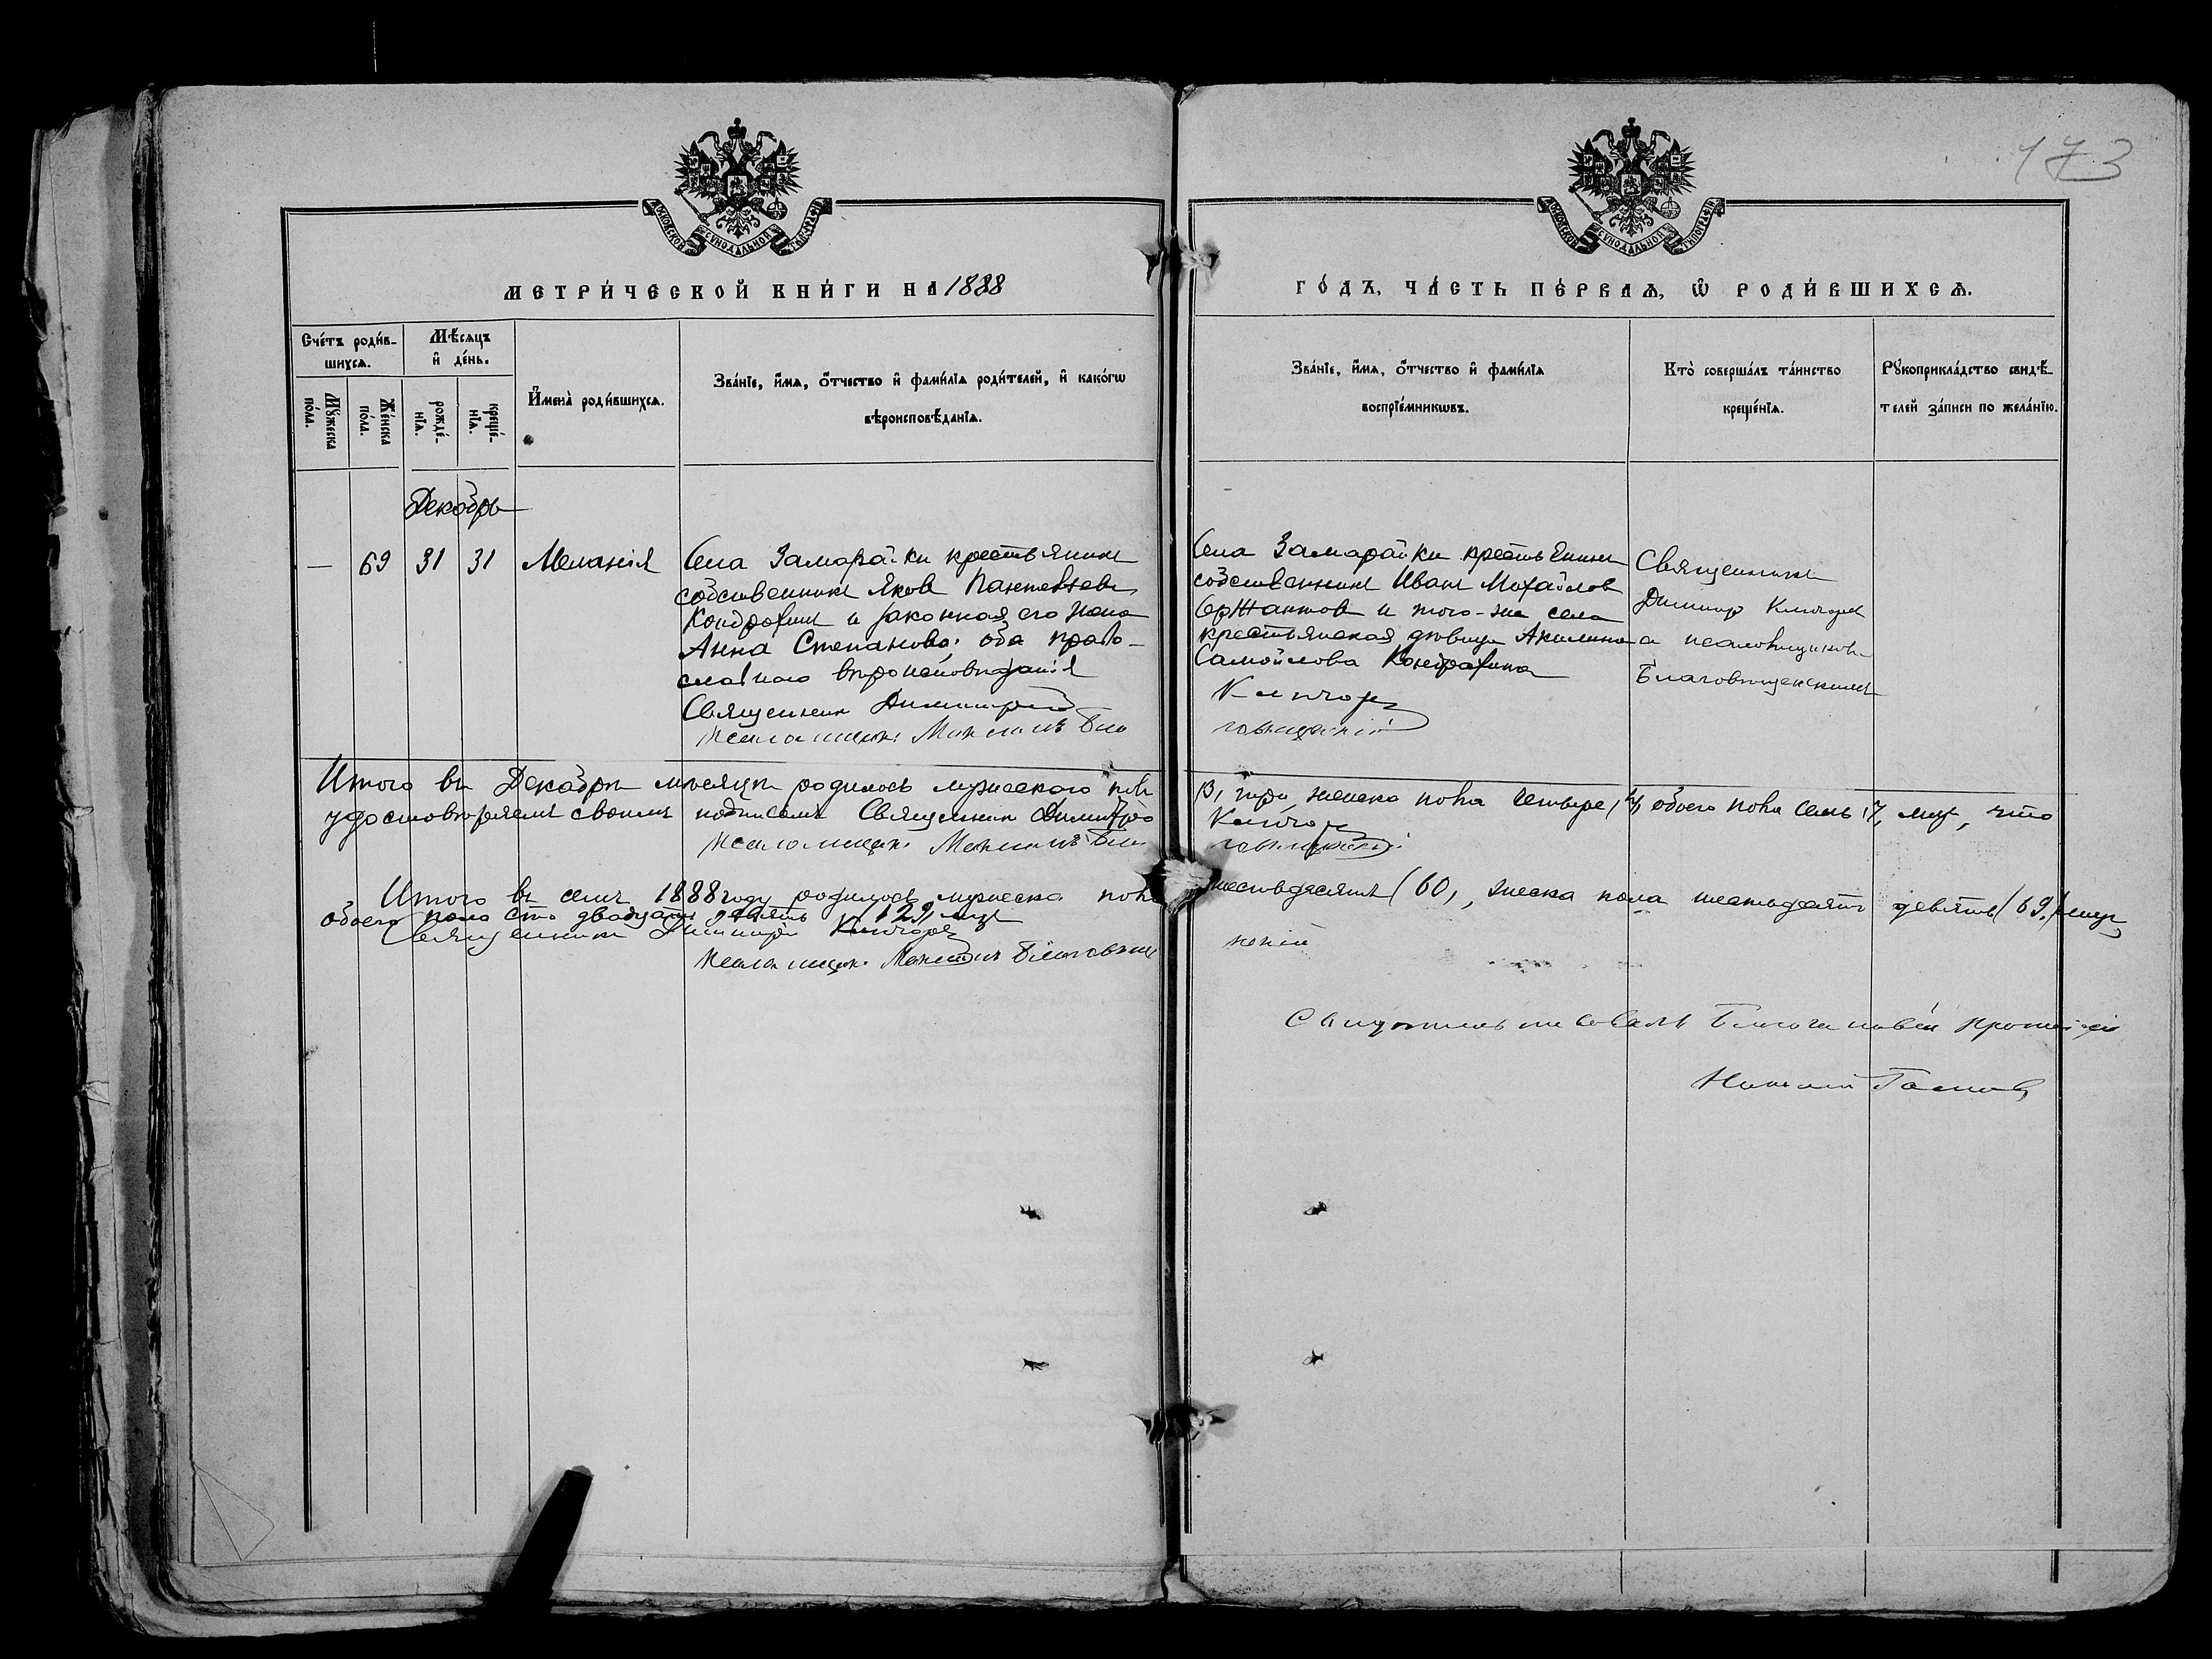 173
МОСКОВСКОЙ СѴНОДАЛЬНОЙ ТИПОГРАФІИ
МОСКОВСКОЙ СѴНОДАЛЬНОЙ ТИПОГРАФІИ
МЕТРИ́ЧЕСКОЙ КНИ́ГИ НА 1888
ГО́ДЪ, ЧА́СТЬ ПЕ́РВАѦ, Ѽ РОДИ́ВШИХСѦ.
Сче́тъ роди́в-
шихсѧ.
Мꙋ́жеска по́ла.
Же́нска по́ла.
Мѣ́сѧцъ
и҆ де́нь.
рожде́-
нїѧ.
креще́-
нїѧ.
И҆мена̀ роди́вшихсѧ.
Зва́нїе, и҆́мѧ, ѻ҆́тчество и҆ фами́лїѧ роди́телей, и҆ како́гѡ
вѣроисповѣ́данїѧ.
Зва́нїе, и҆́мѧ, ѻ҆́тчество и҆ фами́лїѧ
воспрїе́мникѡвъ.
Кто̀ соверша́лъ та́инство
креще́нїѧ.
Рꙋкоприкла́дство свидѣ́-
телей за́писи по жела́нїю.
Декабрь
— 69 31 31 Меланія
Села Замарайки крестьянинъ
собственникъ Яковъ Пантелѣевъ
Кондрашин и законная его жена
Анна Степанова; оба право-
славнаго вѣроисповѣданія
Священник Димитрій
Псаломщикъ Бла
Села Замарайки крестьянинъ
собственникъ Иванъ Михайловъ
Сержантовъ и того-же села
крестьянская дѣвица Акилина
Самойлова Кондрашина
Ключарев
говѣщенскій
Священникъ
Димитр Ключарев
а псаломщиком
Благовѣщенскимъ
Итого въ Декабрѣ мѣсяцѣ родилось мужескаго пола
/3, три, женска пола четыре /4, обоего пола семь /7, что
удостовѣряемъ своимъ подписомъ Священник Димитрій
Ключарев
Псаломщикъ Бла
говѣщенскій
Итого въ семъ 1888 году родилось мужеска пола
шестьдесятъ (60), женска пола шестьдесятъ девять (69,
обоего пола сто двадцать девять (129)
Священникъ Димитрій Ключарев
Псаломщикъ Благовѣще
нскій
Свидѣтельствовалъ Благочинный Протоіерей